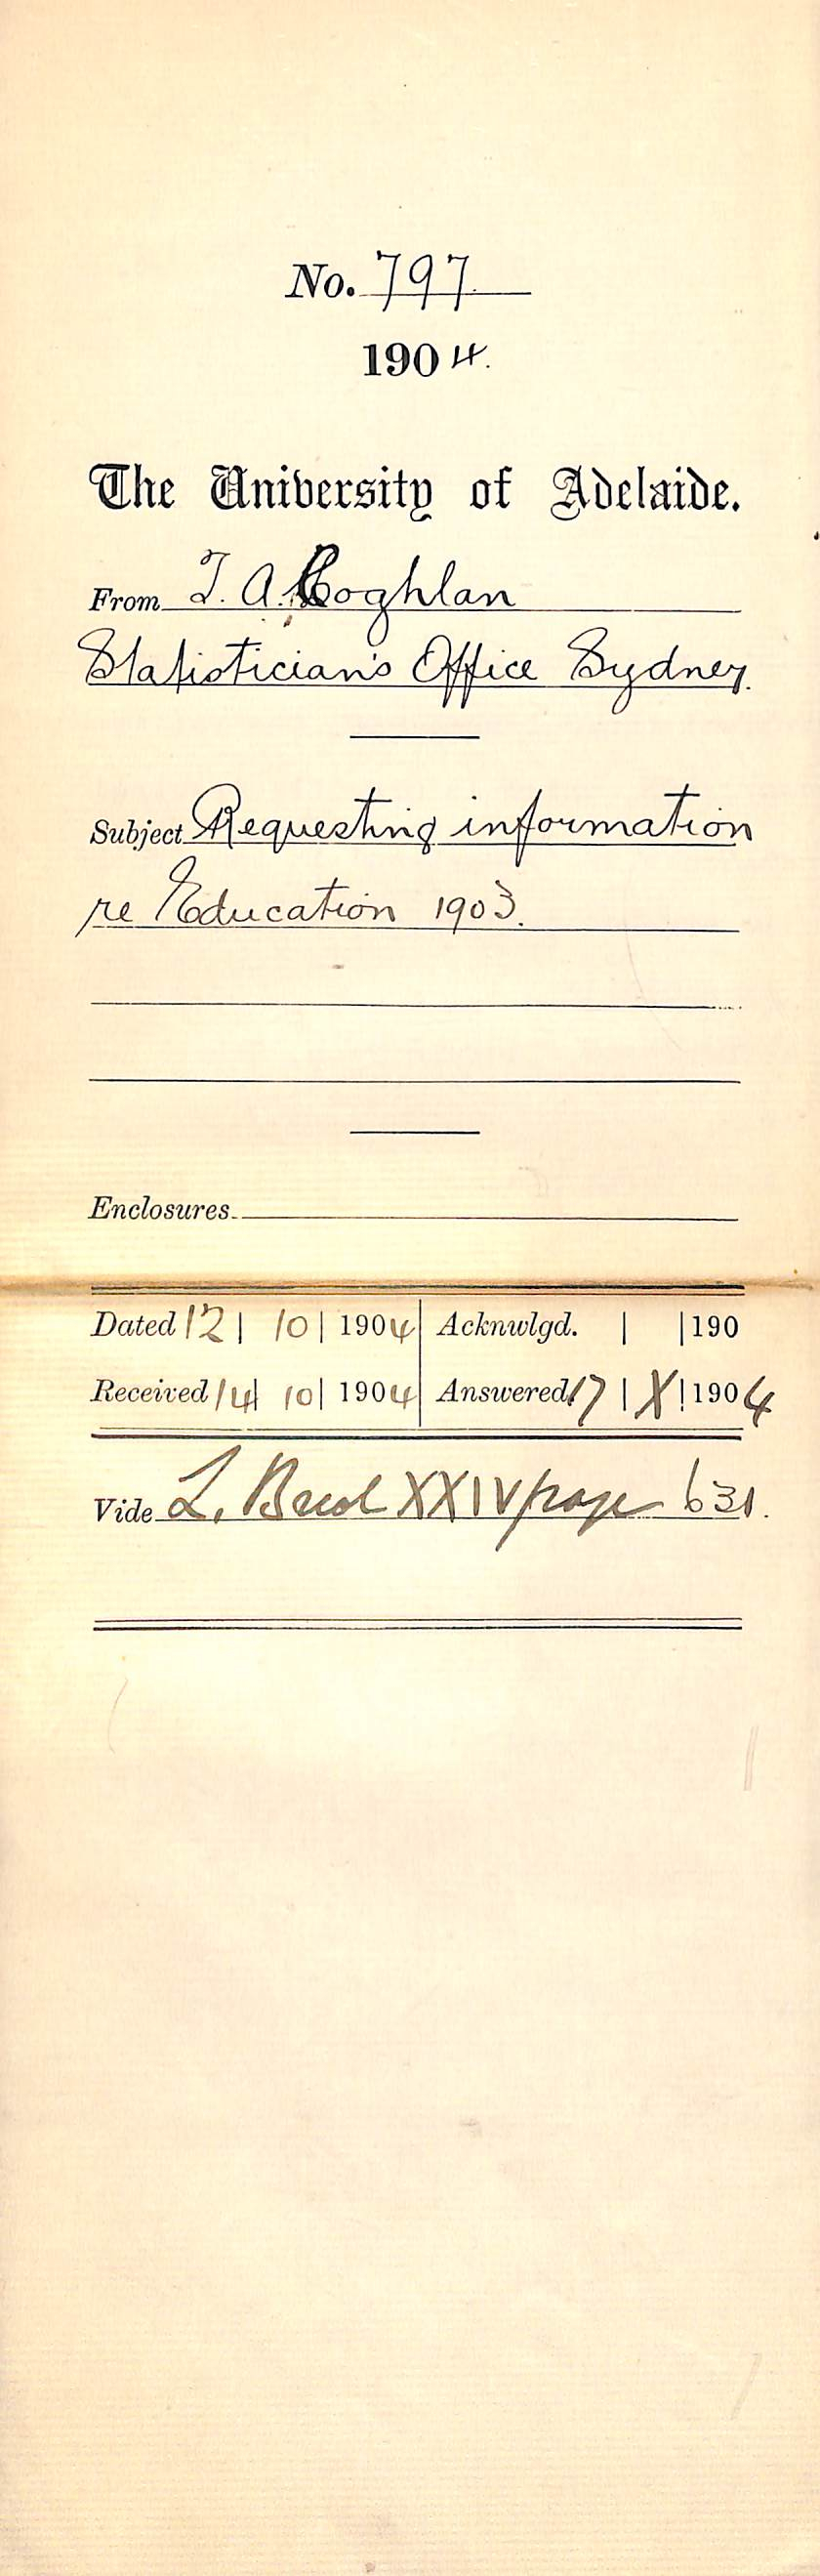 No. 797
1904.
The University of Adelaide.
From T. A. Coghlan
Statistician's Office Sydney.
Subject Requesting information
re Education 1903.
Enclosures
Dated 12 | 10 | 1904 | Acknwlgd. | | 190
Received 14 | 10 | 1904 | Answered 17 | X | 1904
Vide L. XXIV page 631.